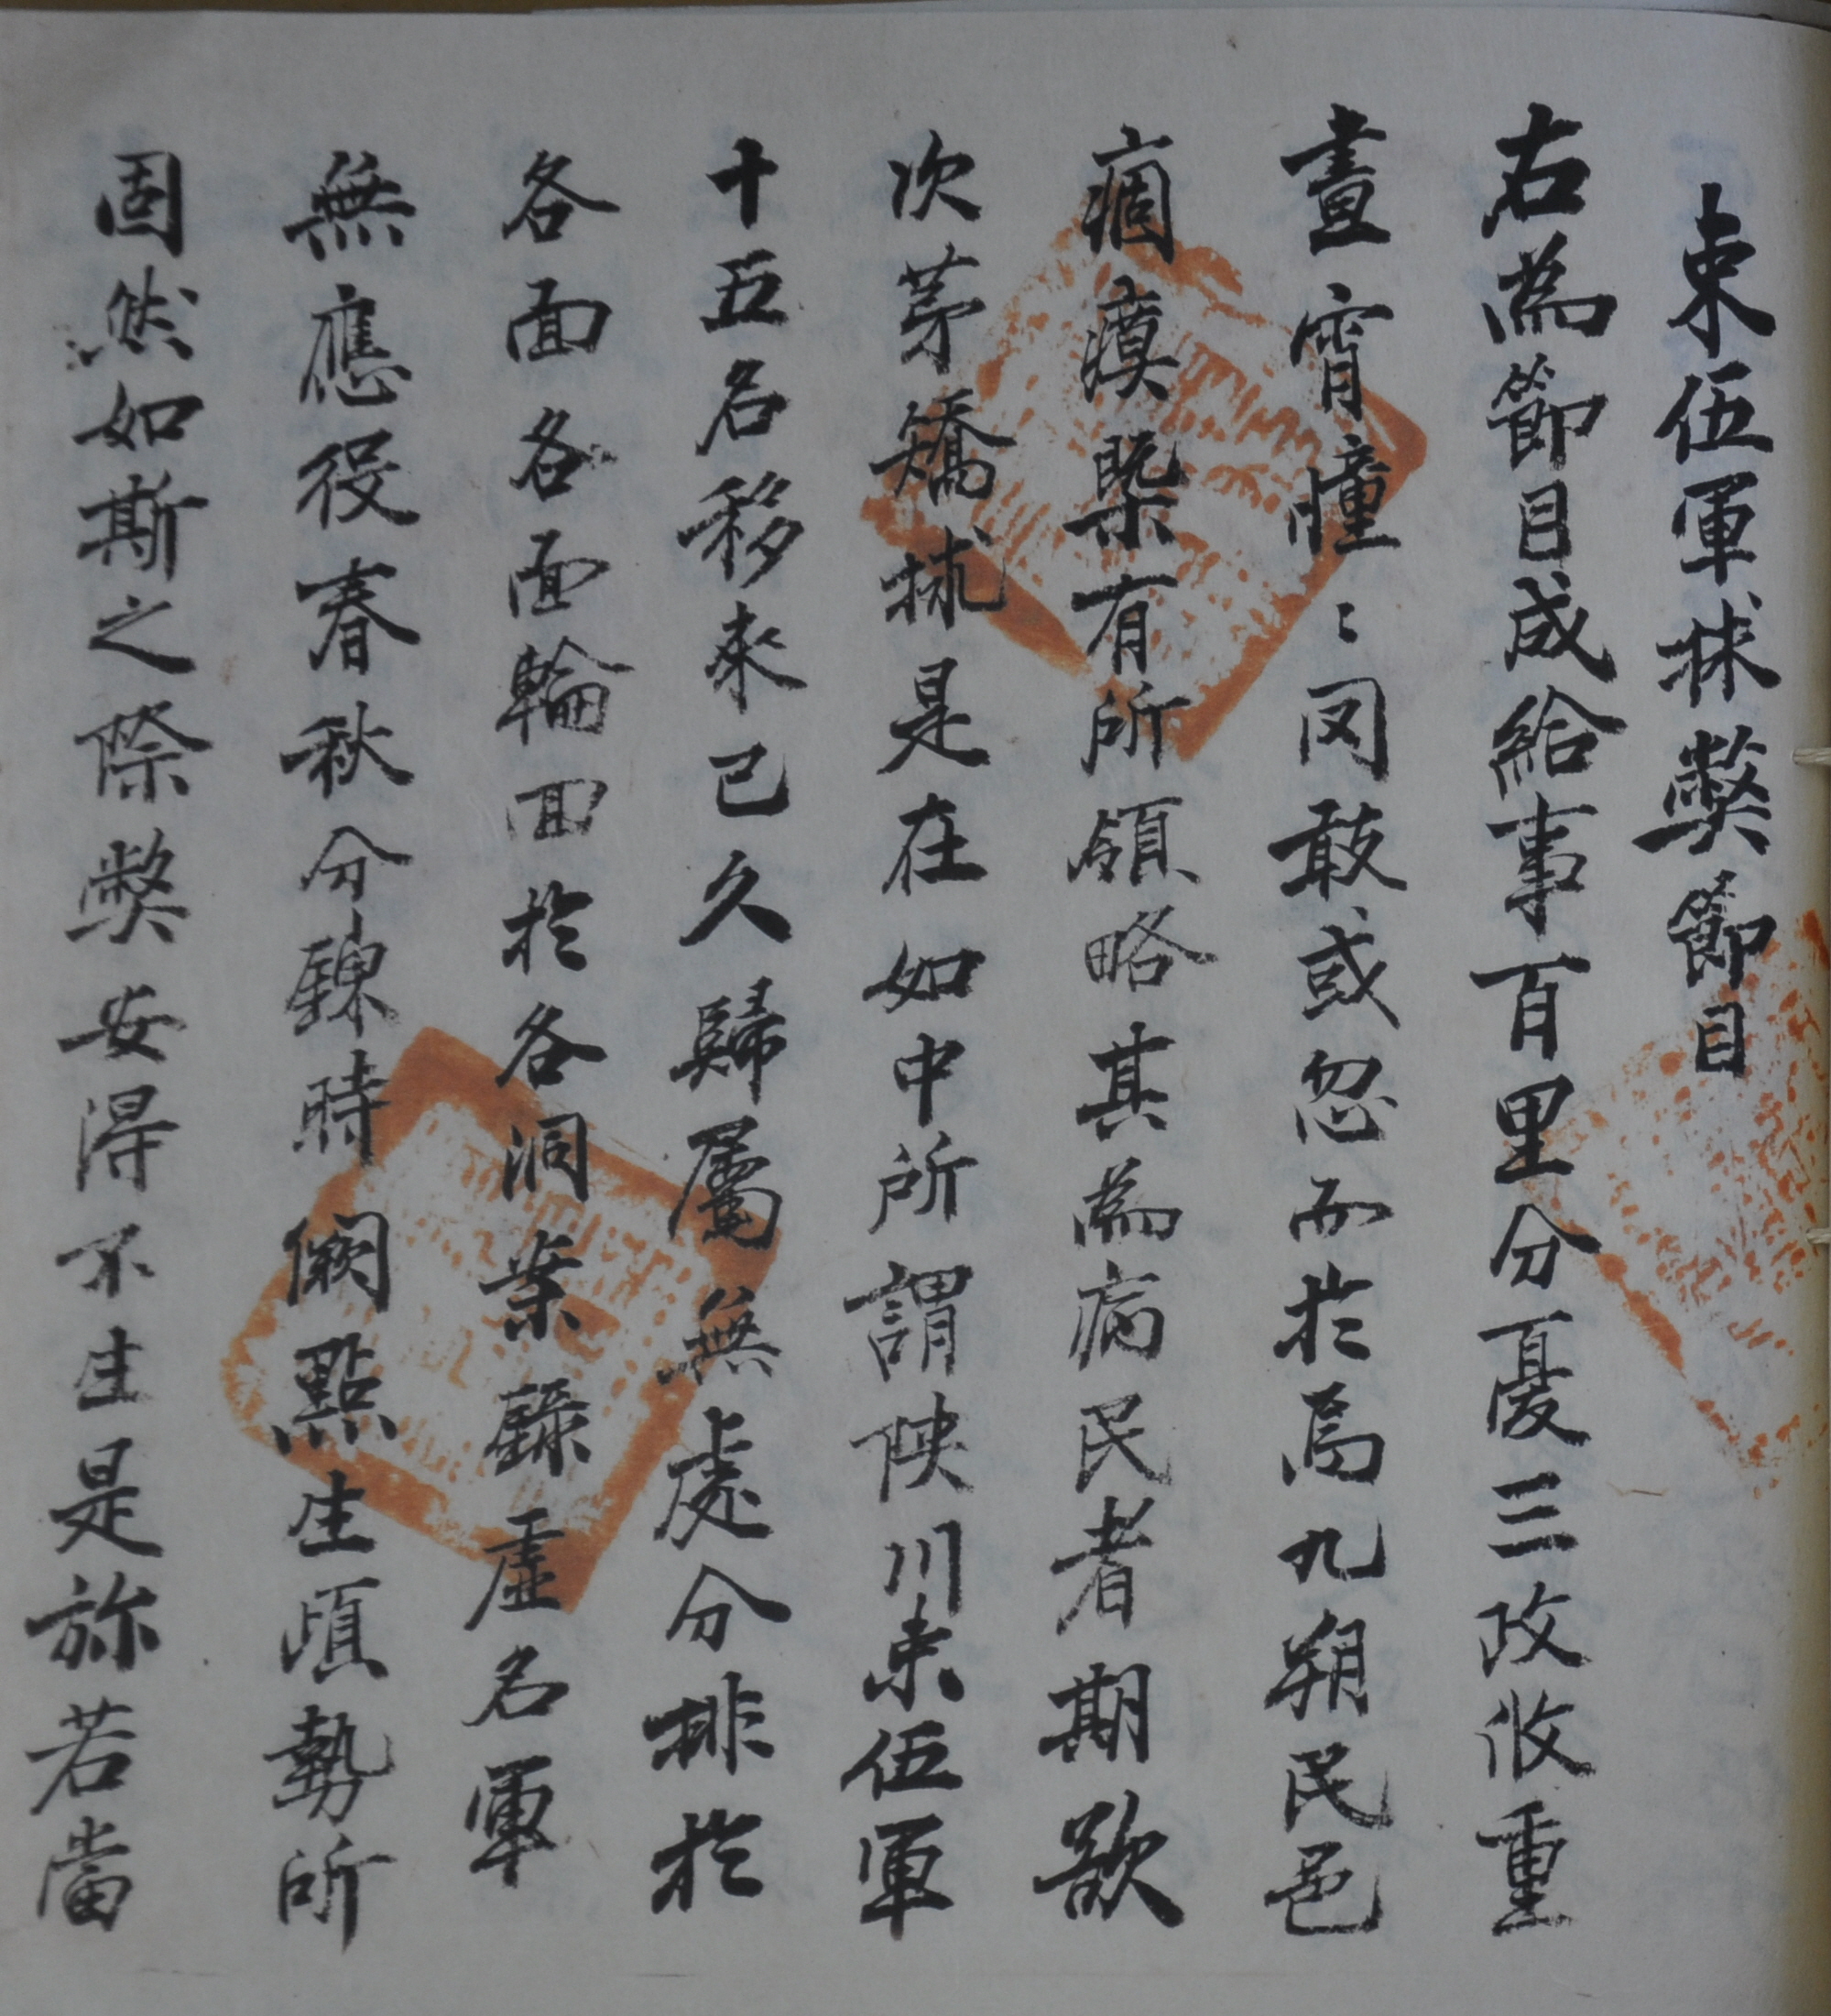 束伍軍捄弊節目
右為節目成給事百里分憂三政收重
晝宵憧〻罔敢或忽而於焉九朔民邑
痼瘼槩有所領略其為病民者期欲
次苐矯捄是在如中所謂陜川束伍軍
十五名移來已久歸屬無處分排於
各面各面輪回於各洞案錄虛名軍
無應役春秋分鍊時闕點生頉勢所
固然如斯之際弊安得不生是旀若當